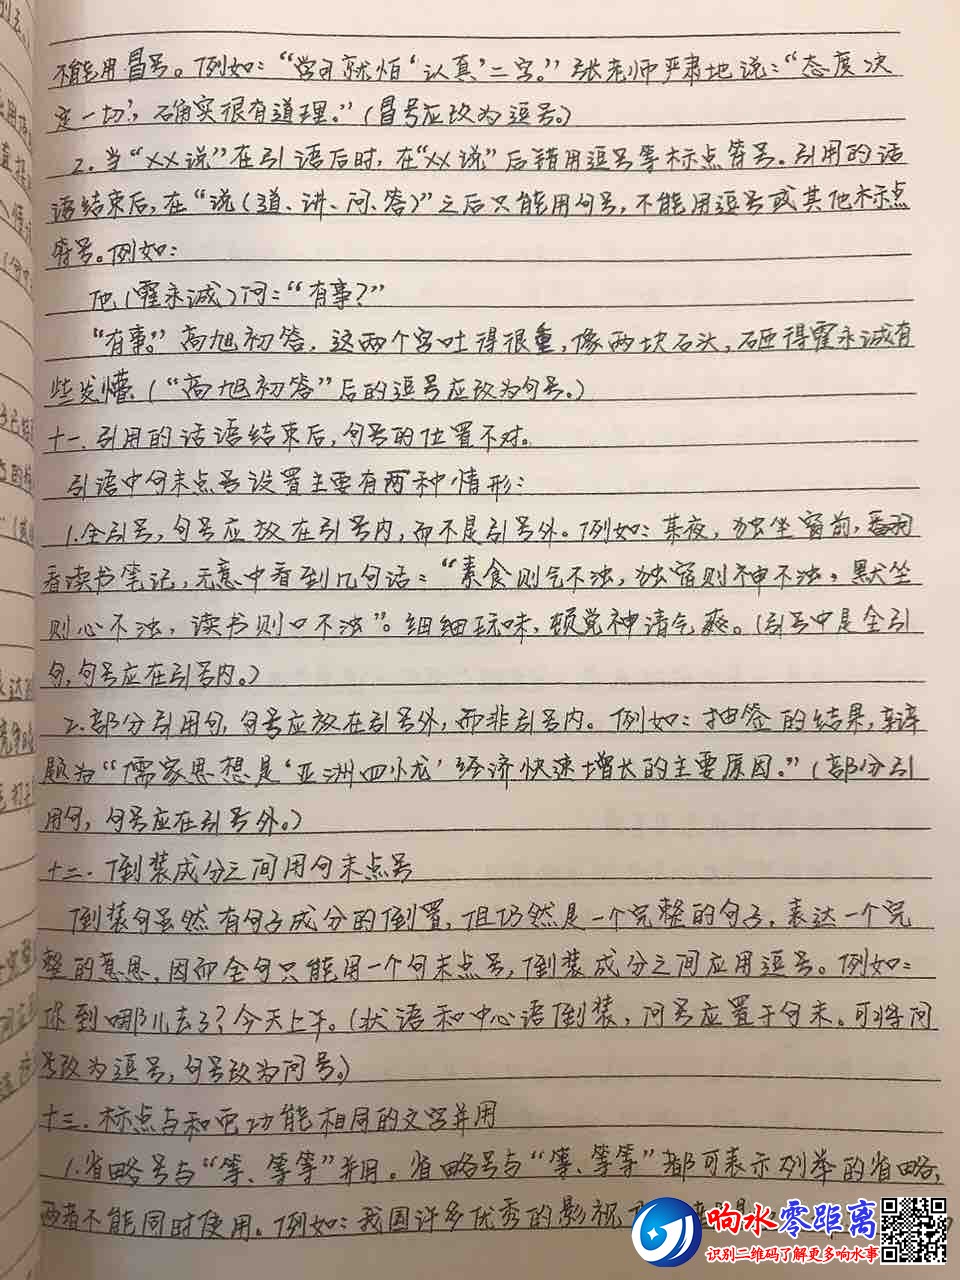 不能用冒号。例如：“学习就怕‘认真’二字。”张老师严肃地说：“态度决
定一切，确实很有道理。”（冒号应改为逗号。）
2.当“XX说”在引语后时，在“XX说”后错用逗号等标点符号。引用的话
语结束后，在“说（道、讲、问、答）”之后只能用句号，不能用逗号或其他标点
符号。例如：
他（霍永诚）问：“有事？”
“有事。”高旭初答，这两个字吐得很重，像两块石头，砸得霍永诚有
些发懵（“高旭初答”后的逗号应改为句号。）
十一.引用的话语结束后，句号的位置不对。
引语中句末点号设置主要有两种情形：
1.全引号，句号应放在引号内，而不是引号外。例如：某夜，独坐窗前，翻
看读书笔记，无意中看到几句话：“素食则气不浊，独宿则神不浊，默坐
则心不浊，读书则口不浊”。细细玩味，顿觉神清气爽。（引号中是全引
句，句号应在引号内。）
2.部分引用句，句号应放在引号外，而非引号内。例如：抽签的结果，辩
题为“儒家思想是‘亚洲四小龙’经济快速增长的主要原因。”（部分引
用句，句号应在引号外。）
十二.倒装成分之间用句末点号
倒装句虽然有句子成分的倒置，但仍然是一个完整的句子，表达一个完
整的意思，因而全句只能用一个句末点号，倒装成分之间应用逗号。例如：
你到哪儿去了？今天上午。（状语和中心语倒装，问号应置于句末。可将问
号改为逗号，句号改为问号。）
十三.标点与和它功能相同的文字并用
1.省略号与“等、等等”并用。省略号与“等、等等”都可表示列举的省略，
两者不能同时使用。例如：我国许多优秀的影视
响水零距离
识别二维码了解更多响水事